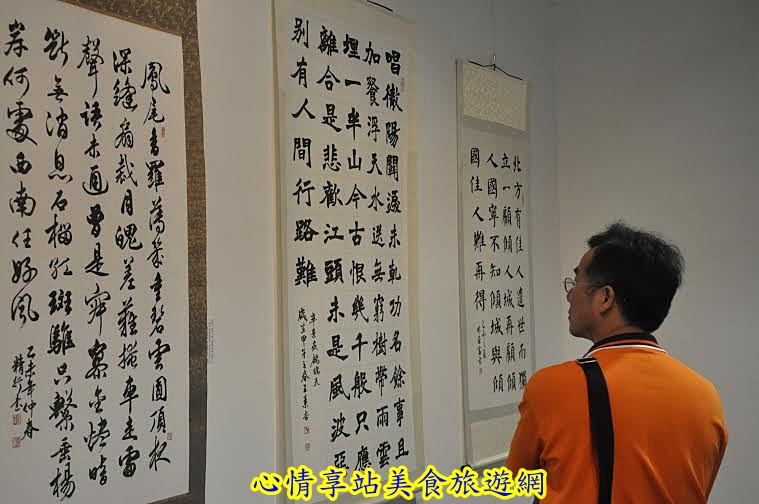 鳳尾香羅薄幾重碧雲圓頂夜
深縫扇裁月魄羞難掩車走雷
聲語未通曾是寂寥金燼暗
斷無消息石榴紅斑騅只繫垂楊
岸何處西南任好風
乙未年仲春
唱徹陽關淚未乾功名餘事且
加餐浮天水送無窮樹帶雨雲
埋一半山今古恨幾千般只應
離合是悲歡江頭未是風波惡
別有人間行路難
辛棄疾鷓鴣天
歲在甲午
北方有佳人遺世而獨
立一顧傾人城再顧傾
人國寧不知傾城與傾
國佳人難再得
心情享站美食旅遊網